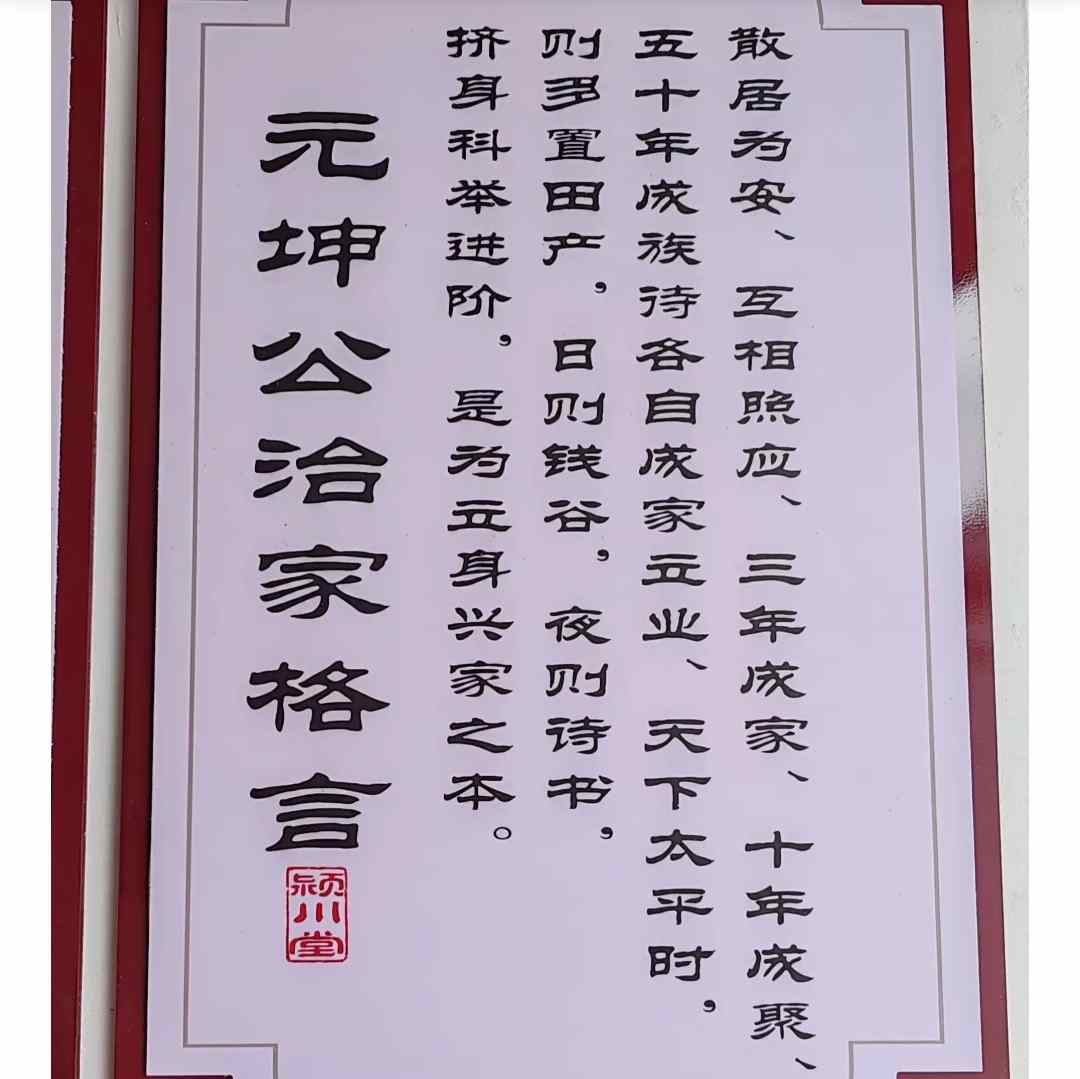 散居为安、互相照应、三年成家、十年成聚、
五十年成族待各自成家立业、天下太平时，
则多置田产，日则钱谷，夜则诗书，
挤身科举进阶，是为立身兴家之本。
元坤公治家格言
颍川堂